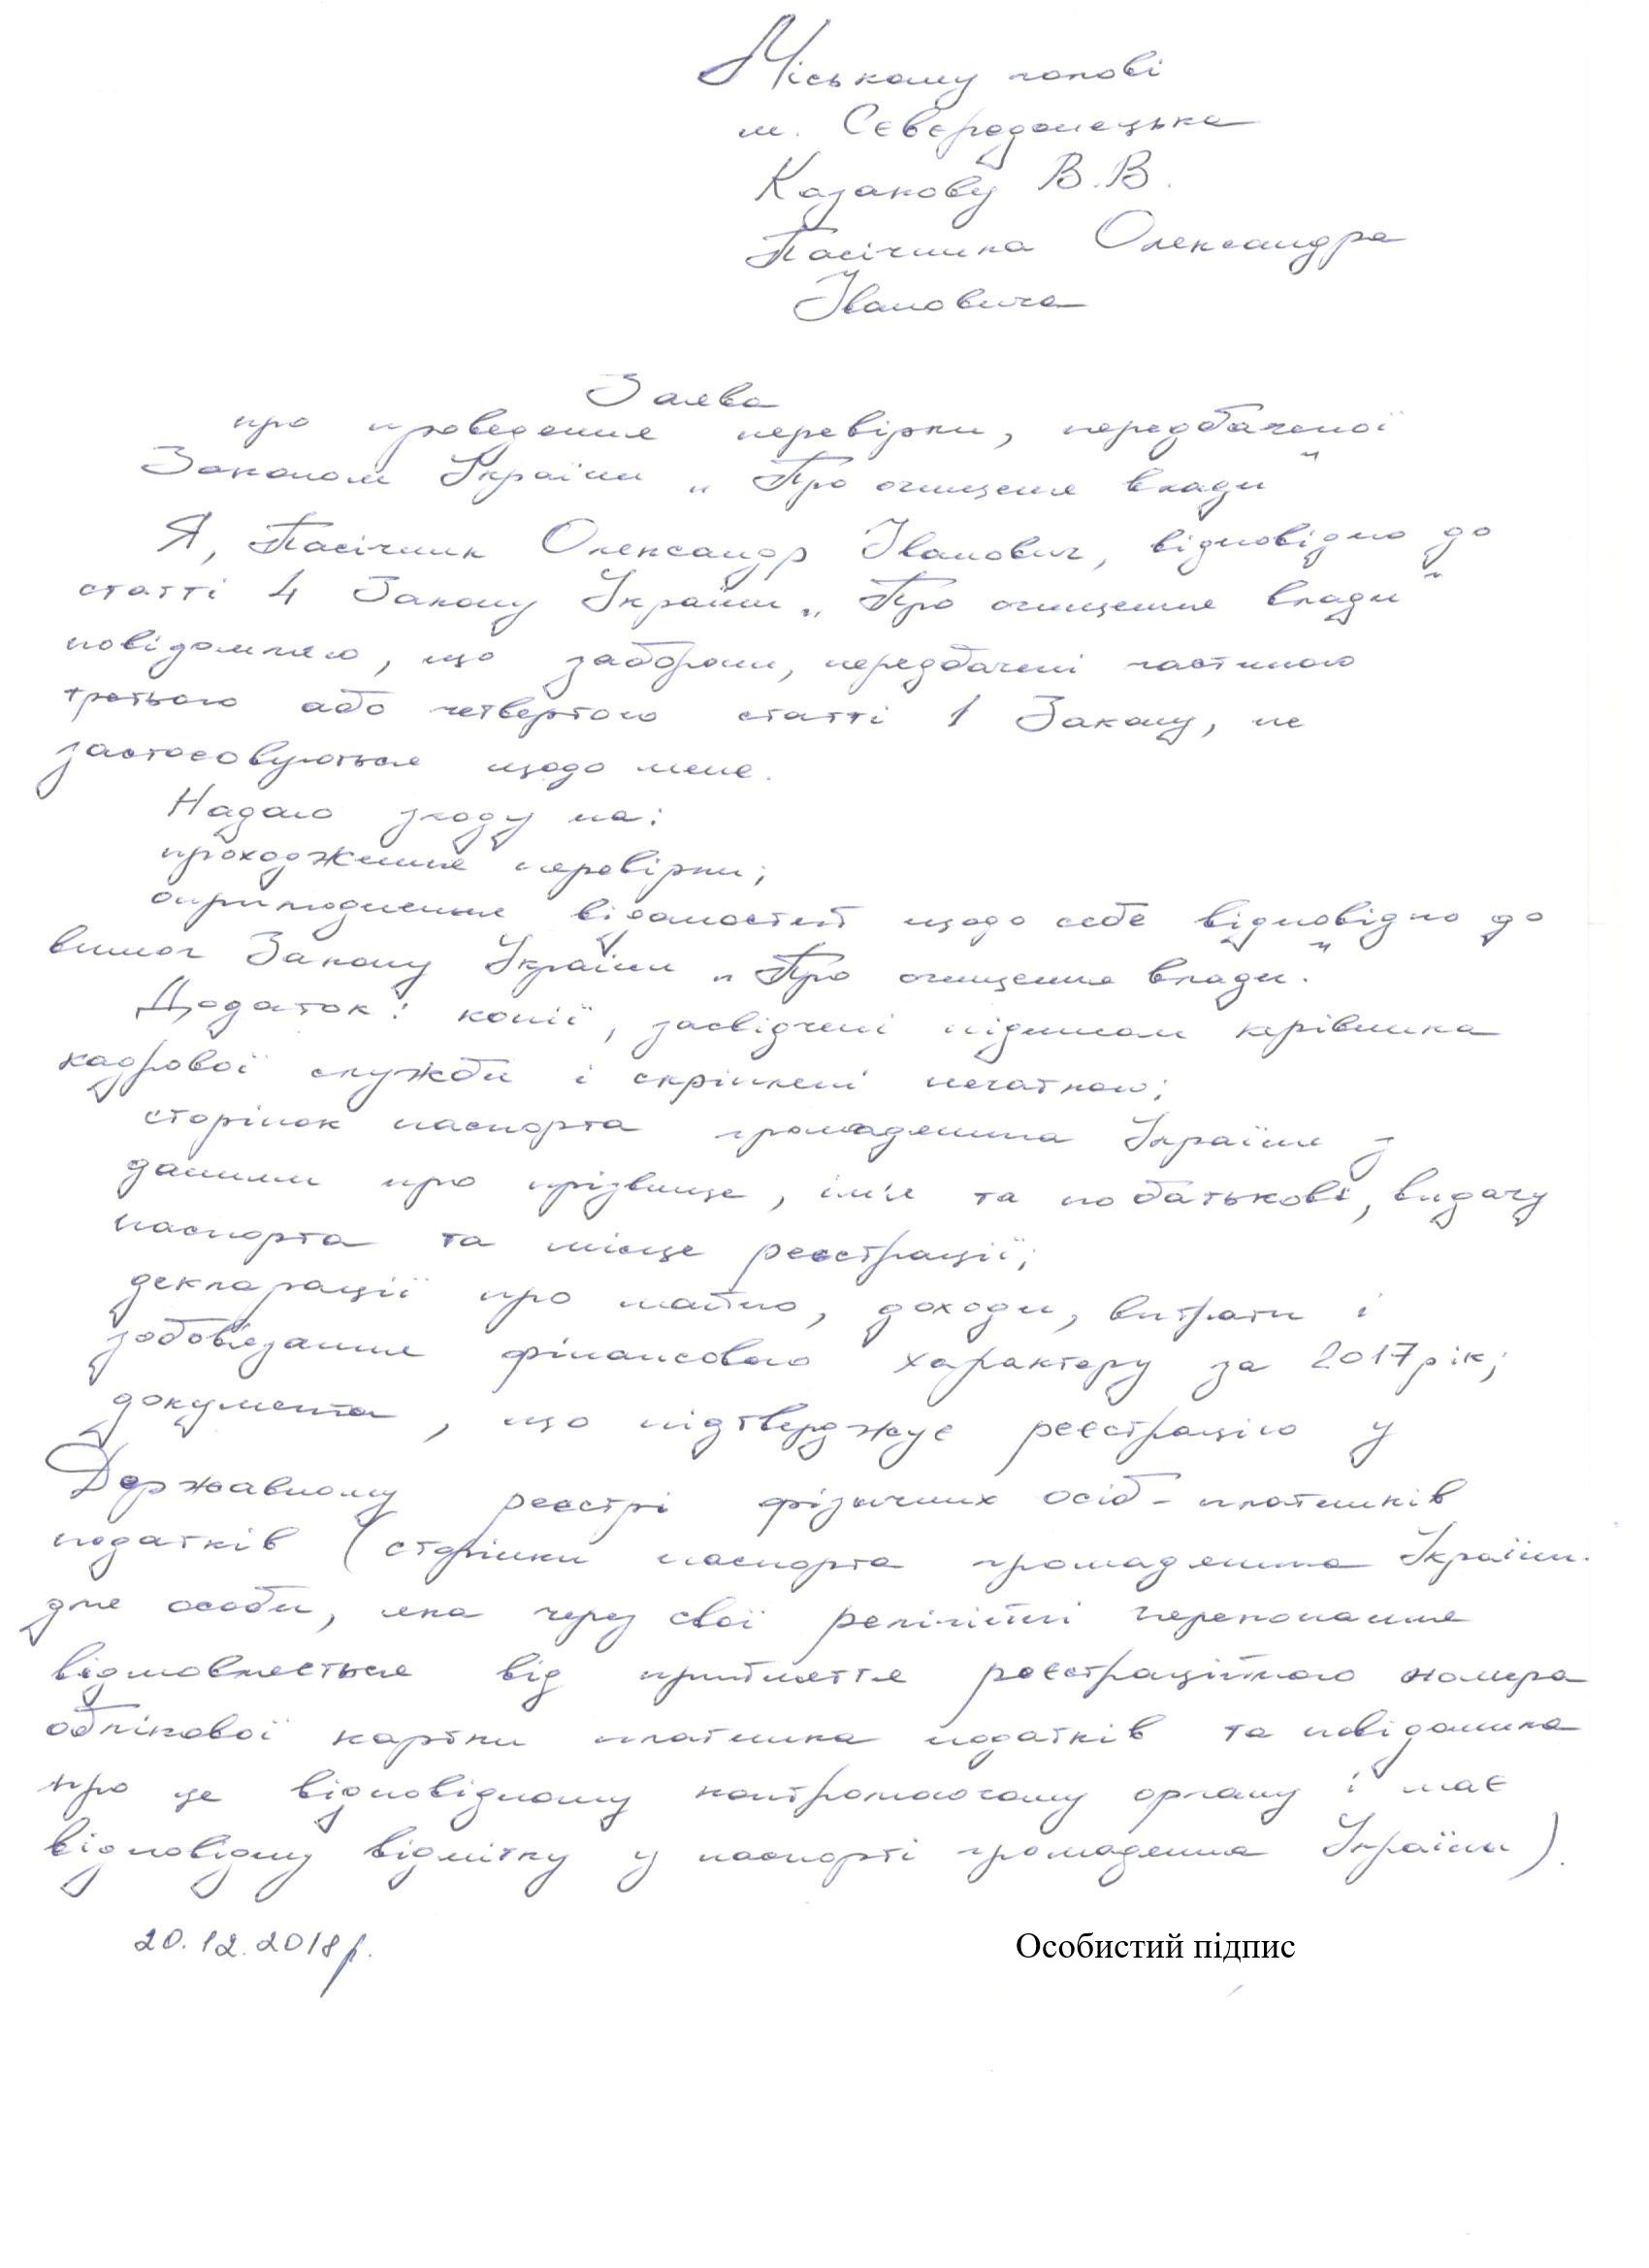 Міському голові
м. Сєвєродонецька
Казакову В.В.
Пасічника Олександра
Івановича
Заява
про проведення перевірки, передбаченої
Законом України „Про очищення влади"
Я, Пасічник Олександр Іванович, відповідно до
статті 4 Закону України „Про очищення влади"
повідомляю, що заборони, передбачені частиною
третьою або четвертою статті 1 Закону, не
застосовуються щодо мене.
Надаю згоду на:
проходження перевірки;
оприлюднення відомостей щодо себе відповідно до
вимог Закону України „Про очищення влади".
Додаток: копії, засвідчені підписом керівника
кадрової служби і скріплені печаткою:
сторінок паспорта громадянина України з
даними про прізвище, ім'я та по батькові, видачу
паспорта та місце реєстрації;
декларації про майно, доходи, витрати і
зобов'язання фінансового характеру за 2017 рік;
документа, що підтверджує реєстрацію у
Державному реєстрі фізичних осіб - платників
податків (сторінки паспорта громадянина України
для особи, яка через свої релігійні переконання
відмовляється від прийняття реєстраційного номера
облікової картки платника податків та повідомила
про це відповідному контролюючому органу і має
відповідну відмітку у паспорті громадянина України).
20.12.2018р.
Особистий підпис